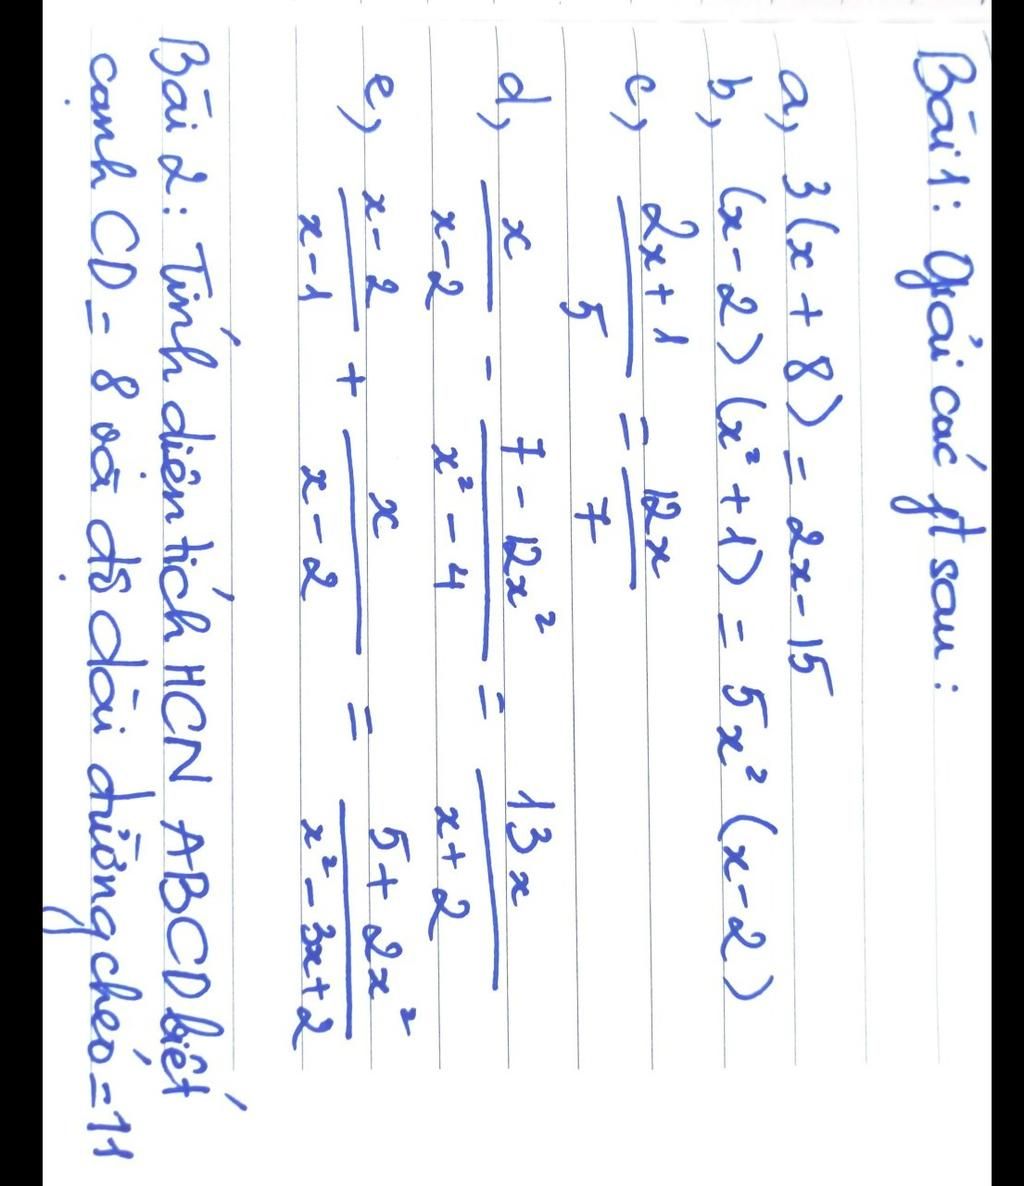 Bài 1: Giải các pt sau:
a, 3(x + 8) = 2x - 15
b, (x - 2)(x² + 1) = 5x² (x - 2)
c, (2x + 1)/5 = 12x/7
d, x/(x - 2) - (7 - 12x²)/(x² - 4) = 13x/(x + 2)
e, (x - 2)/(x - 1) + x/(x - 2) = (5 + 2x²)/(x² - 3x + 2)
Bài 2: Tính diện tích HCN ABCD biết
cạnh CD = 8 và độ dài đường chéo = 11